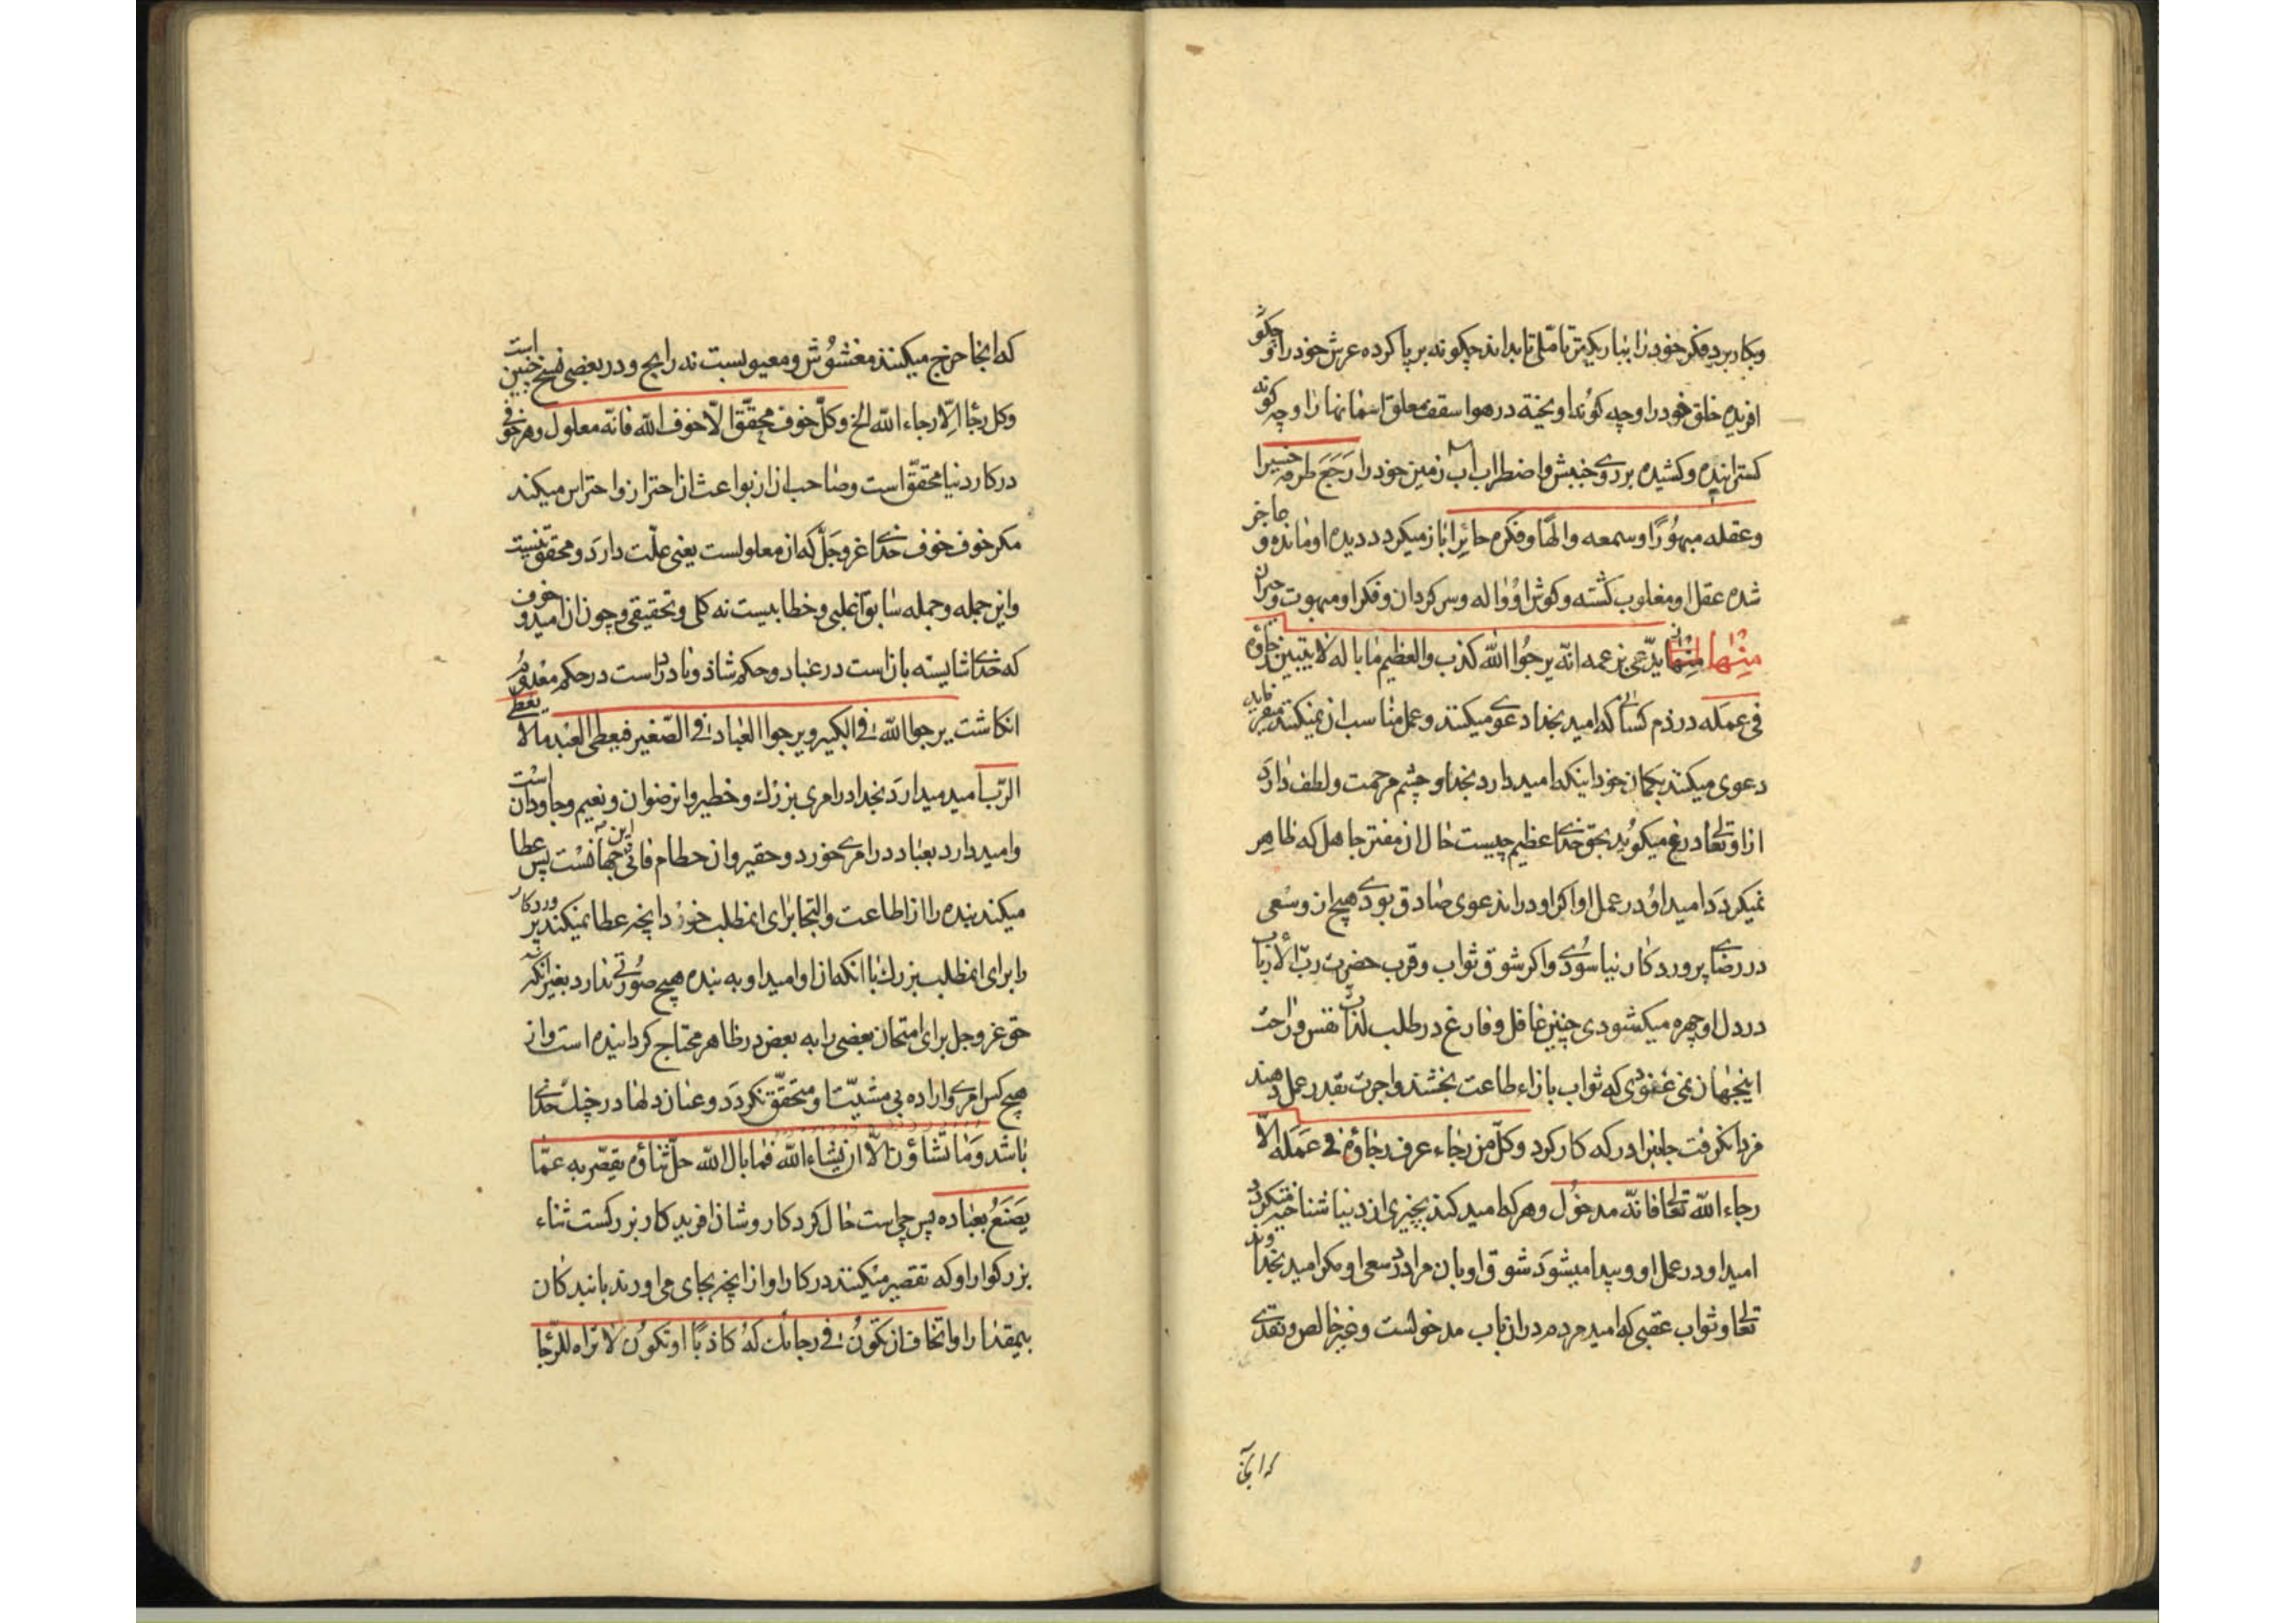 وبکار برد فکر خود را بباریکتر تاملی تا بداند چگونه بر پا کرده عرش خود را و چگو
افریده خلق خود را و چه کونه اویخته در هوا سقف معلق اسمانها را و چه کونه
کسترانیده وکشیده بر روی جنبش واضطراب اب زمین خود را رَجَعَ طرفه حسیرا
وعقله مبهُورًا وسمعه والهًا وفکره حائِرا باز میکردد دیده او مانده و عاجز
شده عقل او مغلوب کشته وکوش او واله وسرکردان وفکر او مبهوت و حیران
مِنْها مِنْها یدّعی بزعمه انّه یرجُوا الله کذب والعظیم ما باله لا یتبین رجاؤه
فی عمله در ذم کسانی که امید بخدا دعوی میکنند وعمل مناسب ان نمیکنند میفرماید
دعوی میکند بکمان خود اینکه امید دارد بخدا و چشم مرحمت ولطف دارد
از او تعالی دروغ میکوید بحق خدای عظیم چیست حال ان مفتر جاهل که ظاهر
نمیکردد امید او در عمل او اکر او در این دعوی صادق بودی هیچ ان وسعی
در رضای پروردکار نیاسودی واکر شوق ثواب وقرب حضرت ربّ الارباب
در دل او چهره میکشودی چنین غافل وفارغ در طلب لذات نفس وراحت
اینجهان نمی غنودی که ثواب بازاء طاعت بخشند واجرت بقدر عمل دهند
مزد انکرفت جان برادر که کار کرد وکلّ من رجاء عرف رجاؤه فی عَمَله الّا
رجاء الله تعالی فانّه مدخُول وهر که امید کند بچیزی از دنیا شناخته میکردد
امید او در عمل او وپیدا میشود شوق او بان مراد در سعی او مکر امید بخداوند
تعالی وثواب عقبی که امید مردم در ان باب مدخولست وغیر خالص ونقدی
که انجا
که انجا خرج میکنند مغشُوش ومعیوبست نه رایج ودر بعضی نسخ چنین است
وکل رجاء الّا رجاء الله الخ وکلّ خوف محقّق الّا خوف الله فانّه معلول وهر خوفی
در کار دنیا محقّق است وصاحب ان از بواعث ان احتراز واحتراس میکند
مکر خوف خوف خدای عزوجلّ که ان معلولست یعنی علّت دارد ومحقق نیست
واین جمله وجمله سابق اغلبی وخطابیست نه کلی وتحقیقی وچون ان امید و خوف
که خدای شایسته بان است در عباد وحکم شاذ ونادر است در حکم معدومی
انکاشت یرجوا الله فی الکبیر ویرجوا العباد فی الصّغیر فیعطی العبد ما لا یعطی
الرّب امید میدارد بخدا در امری بزرك وخطیر وان رضوان ونعیم وجاودان است
وامید دارد بعباد در امری خورد وحقیر وان حطام فانی این جهانست پس عطا
میکند بنده را از اطاعت والتجا برای انمطلب خورد انچه عطا نمیکند پروردکار
را برای انمطلب بزرك با انکه از او امید او به بنده هیچ صُورتی ندارد بغیر انکه
حق عزوجل برای امتحان بعضی را به بعض در ظاهر محتاج کردانیده است واز
هیچ کس امری واراده بی مشیّت او متحقّق نکردد وعنان دلها در چنك خدای
باشد وَما تَشاؤن الّا ان یشاء الله فما بال الله جلّ ثناؤه یقصّر به عمّا
یَصنَعُ بعباده پس چی است حال کردکار وشان افریدکار بزرکست ثناء
بزرکوار او که تقصیر میکنند در کار او از انچه بجای می اورند با بندکان
بیمقدار او اتخاف ان تکون فی رجائك له کاذبًا او تکون لا تراه للرّجا